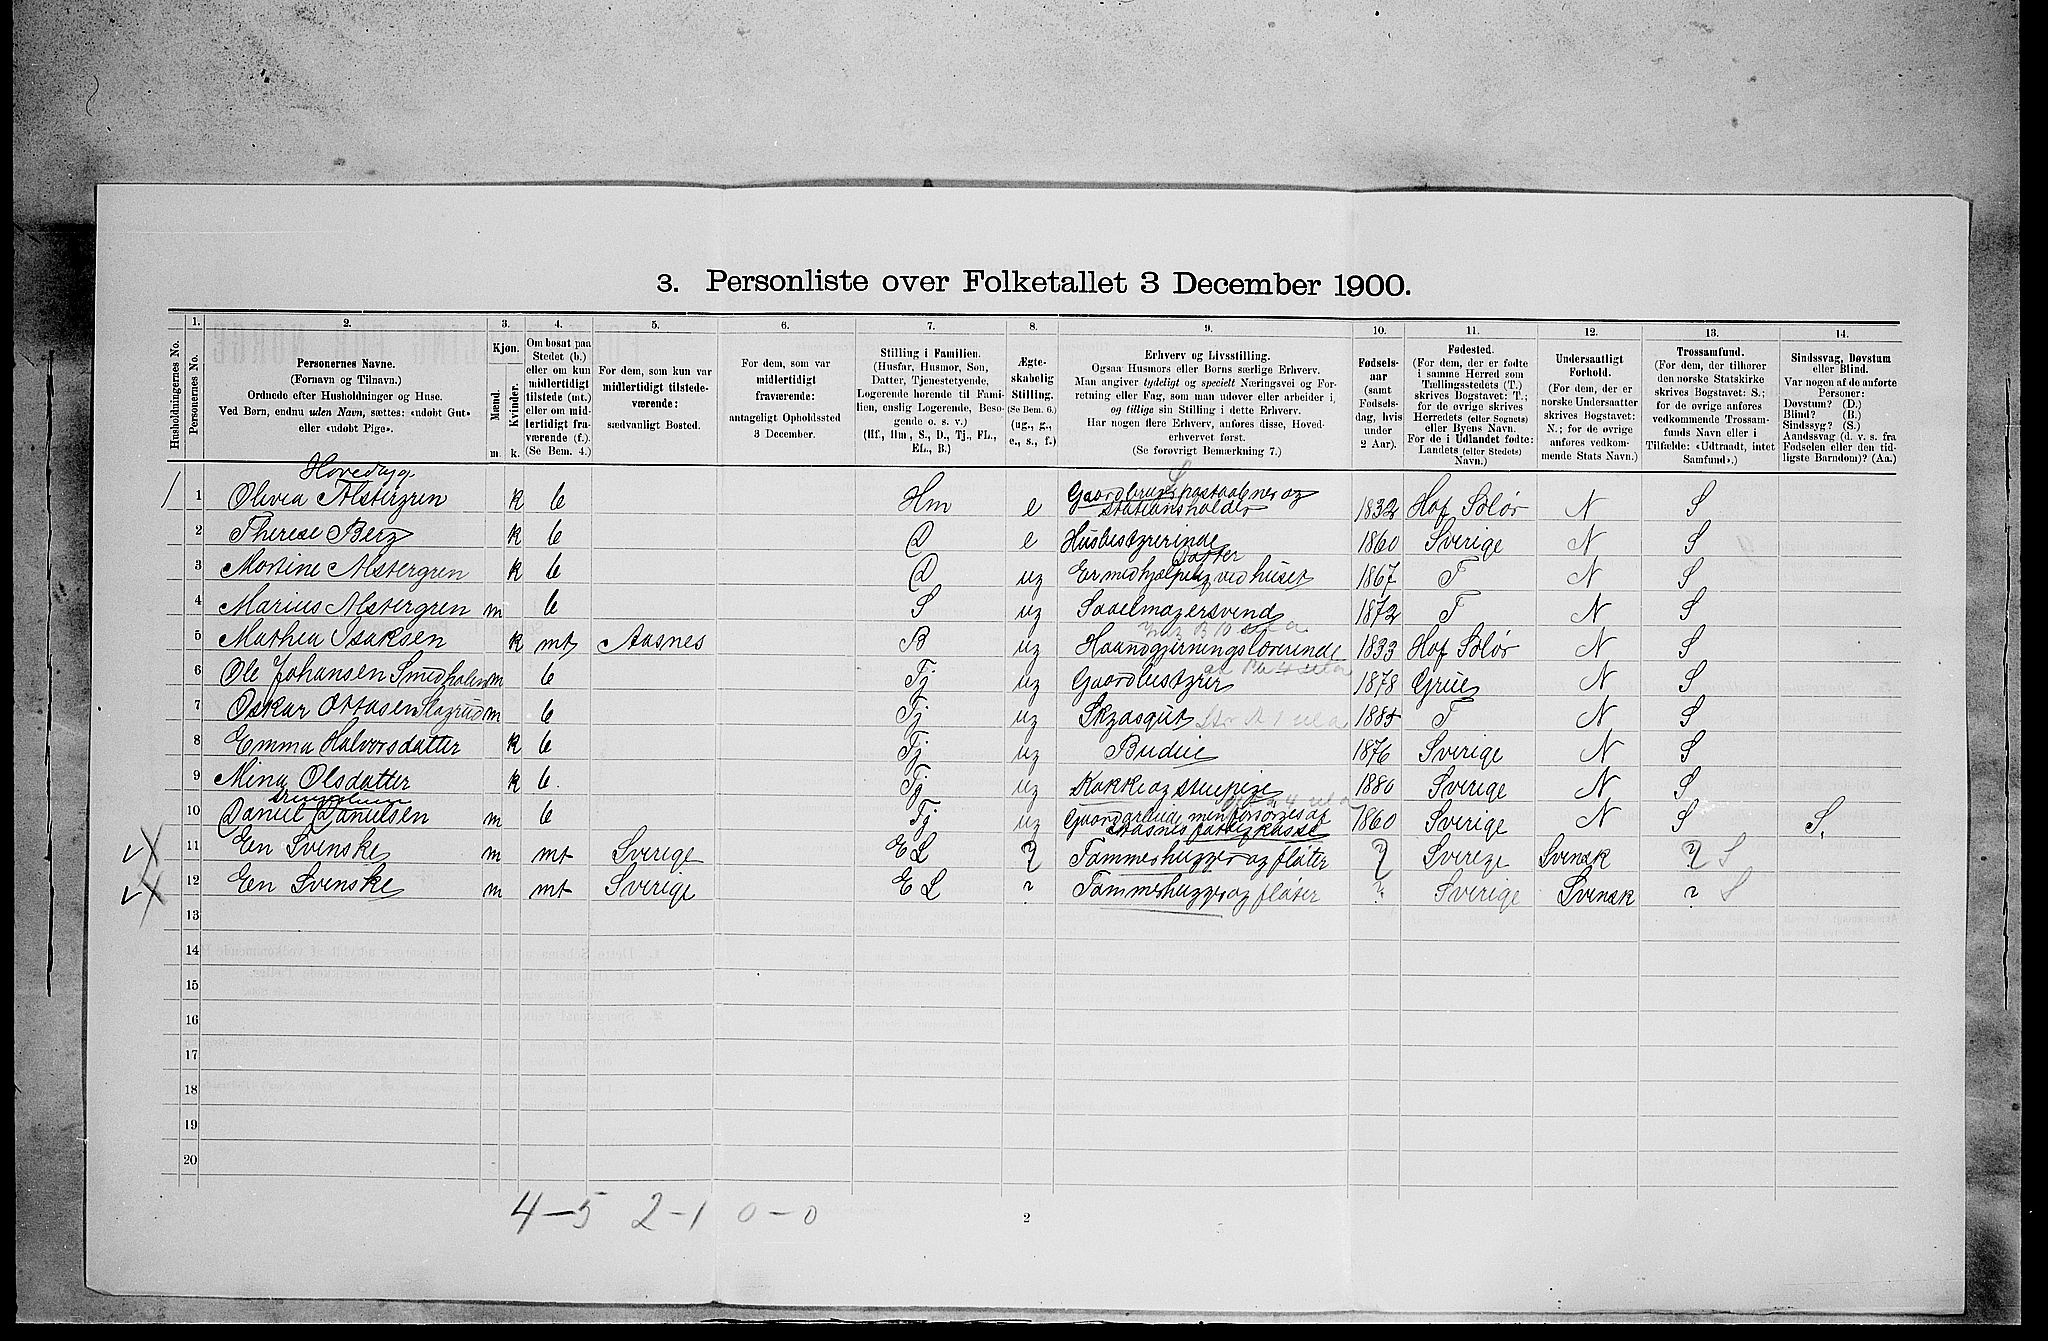 3. Personliste over Folketallet 3 December 1900.
Husholdningernes No.
1. Personernes No.
2. Personernes Navne.
(Fornavn og Tilnavn.)
Ordnede efter Husholdninger og Huse.
Ved Børn, endnu uden Navn, sættes: «udøbt Gut»
eller «udøbt Pige».
3. Kjøn.
Mænd. m.
Kvinder. k.
4. Om bosat paa
Stedet (b.)
eller om kun
midlertidigt
tilstede (mt.)
eller om mid-
lertidigt fra-
værende (f.).
(Se Bem. 4.)
5. For dem, som kun var
midlertidigt tilstede-
værende:
sædvanligt Bosted.
6. For dem, som var
midlertidigt
fraværende:
antageligt Opholdssted
3 December.
7. Stilling i Familien.
(Husfar, Husmor, Søn,
Datter, Tjenestetyende,
Logerende hørende til Fami-
lien, enslig Logerende, Besø-
gende o. s. v.)
(Hf., Hm., S., D., Tj., FL.,
EL., B.)
8. Ægte-
skabelig
Stilling.
(Se Bem. 6.)
(ug., g.,
e., s., f.)
9. Erhverv og Livsstilling.
Ogsaa Husmors eller Børns særlige Erhverv.
Man angiver tydeligt og specielt Næringsvei og For-
retning eller Fag, som man udøver eller arbeider i,
og tillige sin Stilling i dette Erhverv.
Har nogen flere Erhverv, anføres disse, Hoved-
erhvervet først.
(Se forøvrigt Bemærkning 7.)
10. Fødsels-
aar
(samt
Fødsels-
dag, hvis
under
2 Aar).
11. Fødested.
(For dem, der er fødte
i samme Herred som
Tællingsstedets (T.)
skrives Bogstavet: T.;
for de øvrige skrives
Herredets (eller Sognets)
eller Byens Navn.
For de i Udlandet fødte:
Landets (eller Stedets)
Navn.)
12. Undersaatligt
Forhold.
(For dem, der er
norske Undersaatter
skrives Bogstavet:
N.; for de øvrige
anføres vedkom-
mende Stats Navn.)
13. Trossamfund.
(For dem, der tilhører
den norske Statskirke
skrives Bogstavet: S.;
for de øvrige anføres
vedkommende Trossam-
funds Navn eller i
Tilfælde: «Udtraadt, intet
Samfund».)
14. Sindssvag, Døvstum
eller Blind.
Var nogen af de anførte
Personer:
Døvstum? (D.)
Blind? (B.)
Sindssyg? (S.)
Aandssvag (d. v. s. fra
Fødselen eller den tid-
ligste Barndom)? (Aa.)
Hovedbyg.
1 1 Olivia Alstergren k b Hm e Gaardbruger postaabner og stationsholder 1832 Hof Solør N S
2 Therese Berg k b D e Husbestyrerinde 1860 Sverige N S
3 Martine Alstergren k b D ug Datter Er medhjælpelig ved huset 1867 T N S
4 Marius Alstergren m b S ug Sadelmagersvend 1872 T N S
5 Mathea Isaksen k mt Aasnes B ug Haandgjerningslærerinde 1833 Hof Solør N S
6 Ole Johansen Smedholen m b Tj ug Gaardbestyrer 1878 Grue N S
7 Oskar Ottosen Slagrud m b Tj ug Skydsgut 1885 T N S
8 Emma Halvorsdatter k b Tj ug Budeie 1876 Sverige N S
9 Mina Olsdatter k b Tj ug Kokke og stuepige 1880 Sverige N S
10 Daniel Danielsen m b Tj ug Gaardarbeide men forsørges af Aasnes fattigkasse 1860 Sverige N S S.
11 En Svenske m mt Sverige EL ? Tømmerhugger og fløter ? Sverige Svensk ? S
12 En Svenske m mt Sverige EL ? Tømmerhugger og fløter ? Sverige Svensk ? S
13
14
15
16
17
18
19
20
4-5 2-1 0-0
2